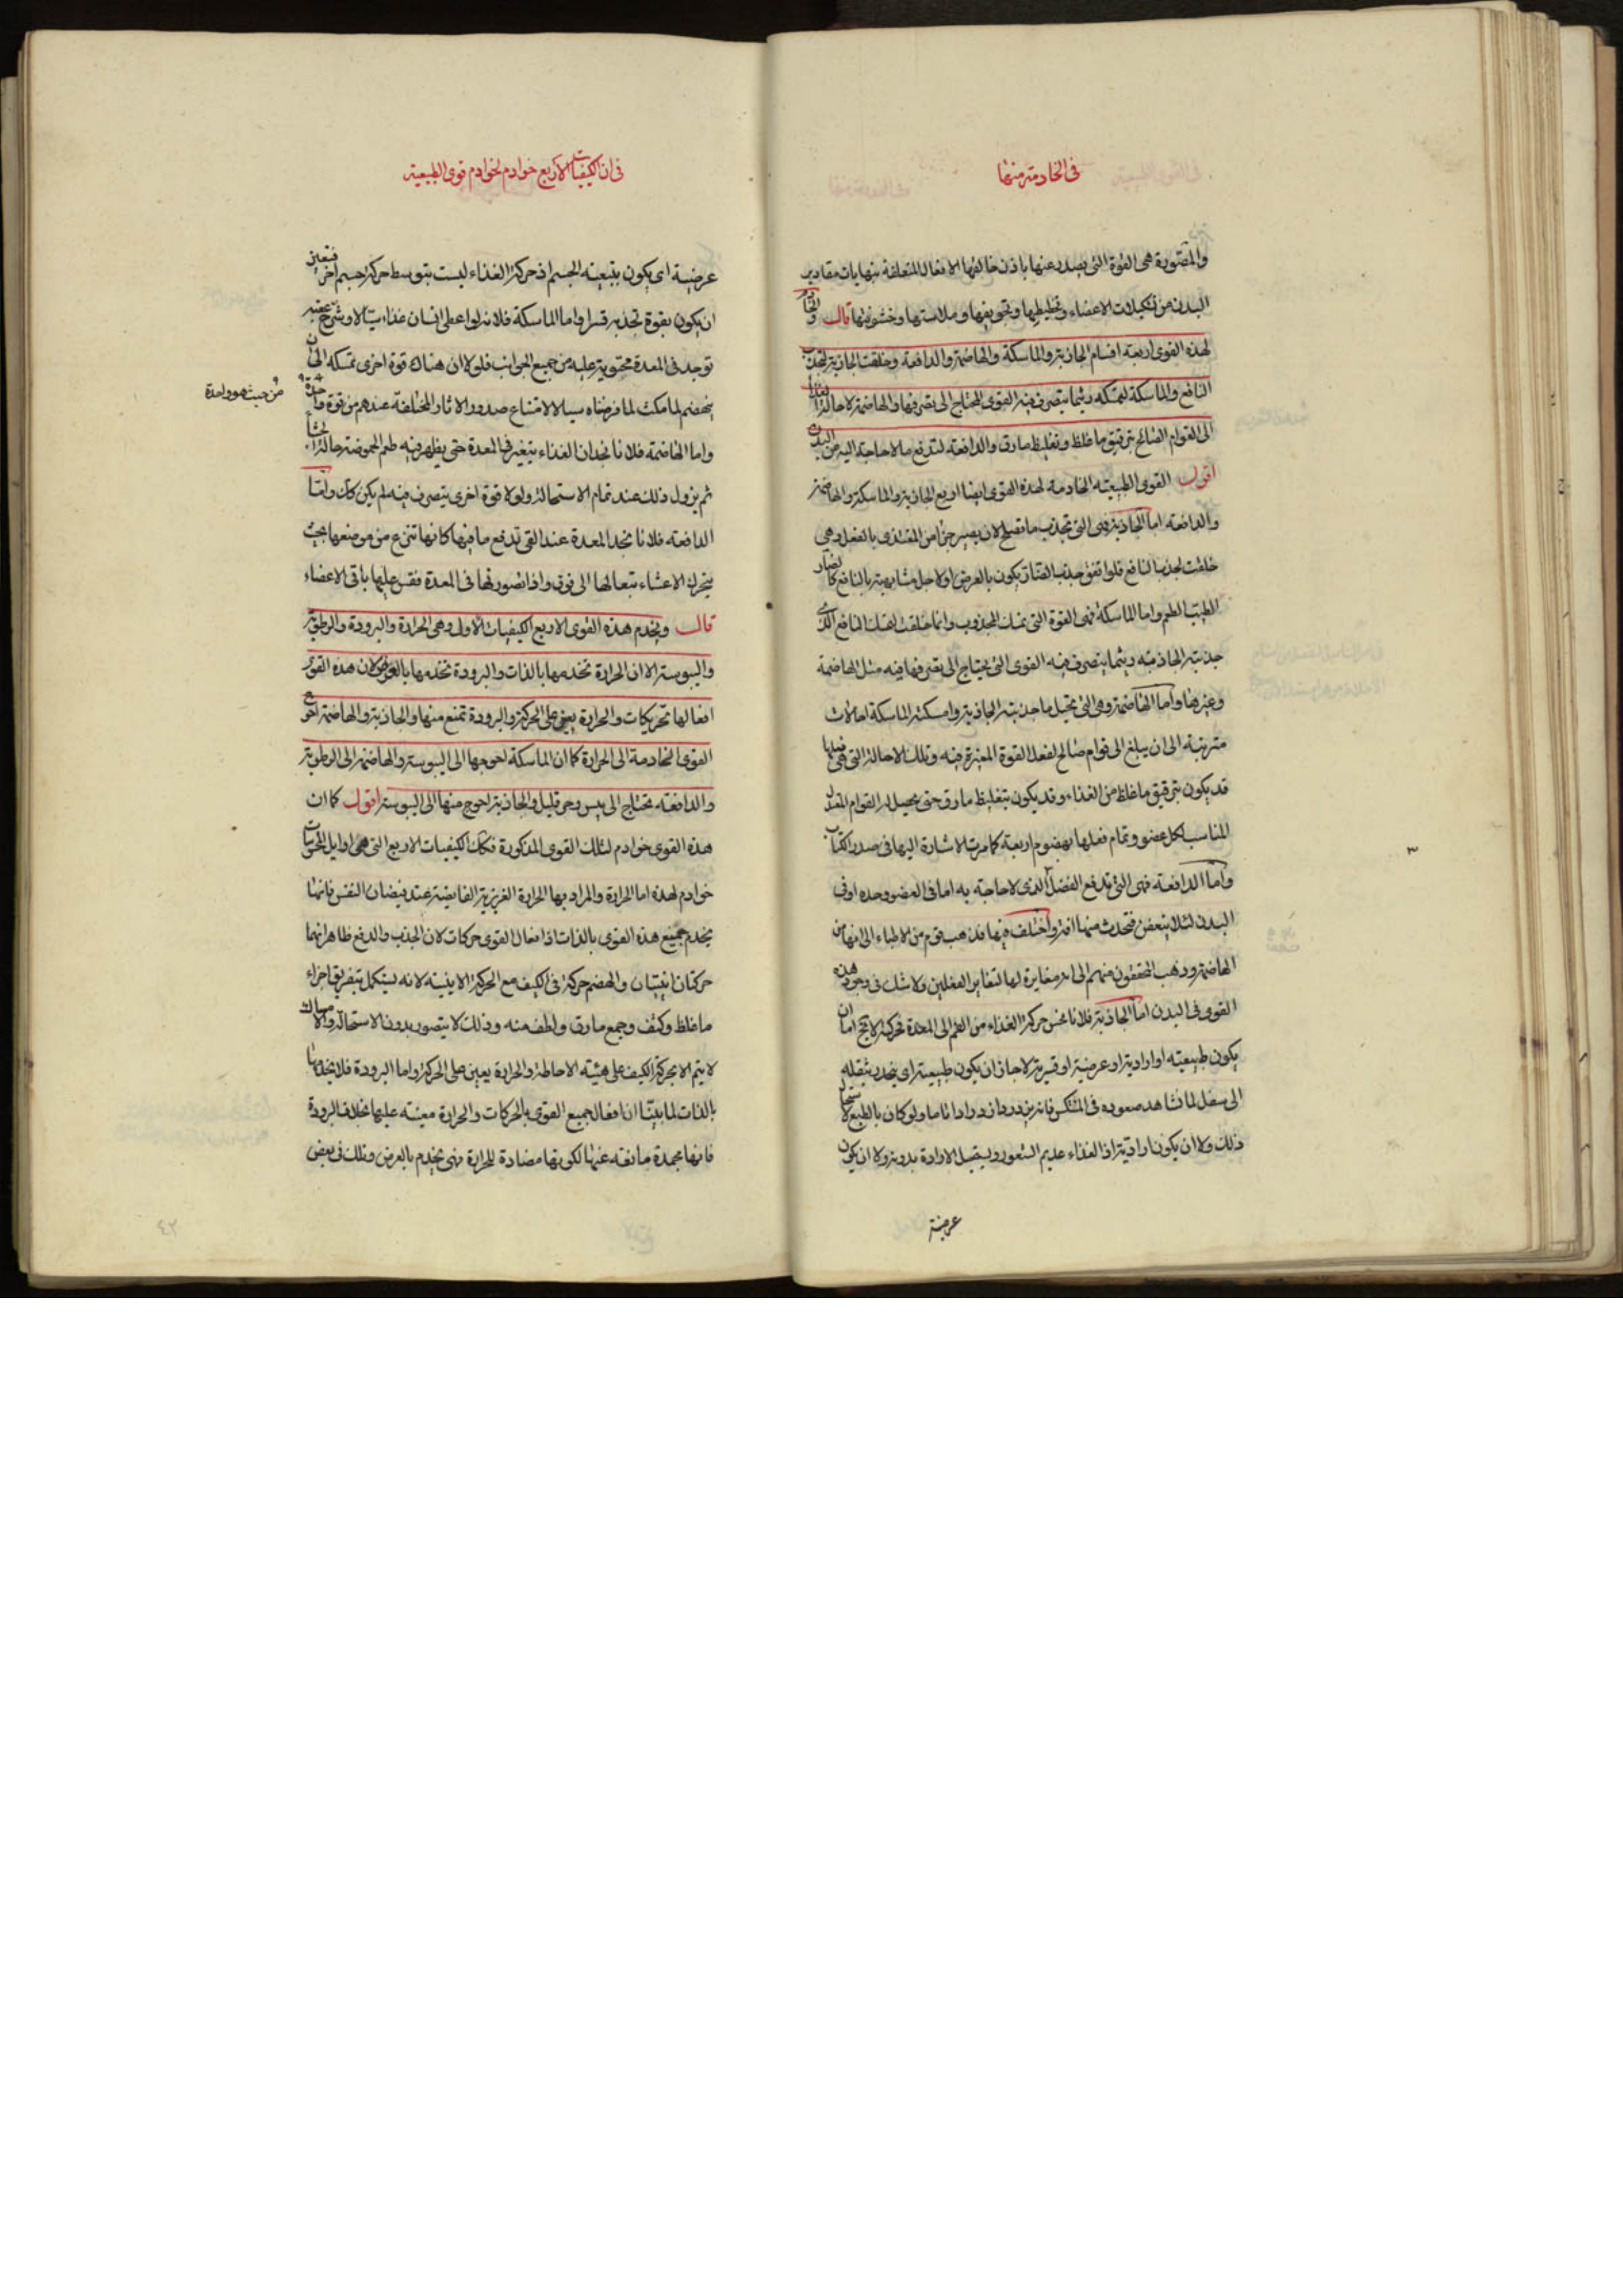 في الخادمة منها
والمصورة هي القوة التي يصدر عنها باذن خالقها الافعال المتعلقة بنهايات مقادير
البدن من تشكيلات الاعضاء وتخطيطها وتجويفها وملاستها وخشونتها قال والخادم
لهذه القوى اربعة اقسام الجاذبة والماسكة والهاضمة والدافعة وخلقت الجاذبة لتجذب
النافع والماسكة لتمسكه ريثما يتصرف فيه القوى المحتاج الى تصرفها والهاضمة لاحالة الغذا
الى القوام الصالح بترقيق ما غلظ وتغليظ ما رق والدافعة لتدفع ما لا حاجة اليه من البدن
اقول القوى الطبيعية الخادمة لهذه القوى ايضا اربع الجاذبة والماسكة والهاضمة
والدافعة اما الجاذبة فهي التي تجذب ما تصلح لان يصير جزأ من المغتذى بالفعل وهي
خلقت لجذب النافع فلو اتفق جذب الضار يكون بالعرض او لاجل مشابهته بالنافع كالضار
الطيب الطعم واما الماسكة فهي القوة التي تمسك المجذوب وانما خلقت لتمسك النافع الذي
جذبته الجاذبة ريثما يتصرف فيه القوى التي يحتاج الى تصرفها فيه مثل الهاضمة
وغيرها واما الهاضمة وهي التي تحيل ما جذبته الجاذبة وامسكته الماسكة احالات
مترتبة الى ان يبلغ الى قوام صالح لفعل القوة المغيرة فيه وتلك الاحالة التي هي فعلها
قد يكون بترقيق ما غلظ من الغذاء وقد يكون بتغليظ ما رق حتى يحصل له القوام المعتدل
المناسب لكل عضو وتمام فعلها بهضوم اربعة كما مرت الاشارة اليها في صدر الكتاب
واما الدافعة فهي التي تدفع الفضل الذى لا حاجة به اما في العضو وحده او في
البدن لئلا يتعفن فتحدث منها افة واختلف فيها فذهب قوم من الاطباء الى انها من
الهاضمة وذهب المحققون منهم الى انه مغايرة لها لتغاير الفعلين ولا شك في وجود هذه
القوى في البدن اما الجاذبة فلانا نحس حركة الغذاء من الفم الى المعدة فحركته لا يخ اما ان
يكون طبيعيه او ارادية او عرضية او قسرية لا جائز ان يكون طبيعية اى ينحدر بثقله
الى سفل لما نشاهد صعوده في المنتكس فانه يزدرد ازدرادا تاما ولو كان بالطبع لاستحال
ذلك ولا ان يكون ارادية اذ الغذاء عديم الشعور ويستحيل الارادة بدونه ولا ان يكون
عرضية
في ان الكيفيات الاربع خوادم لخوادم قوى الطبيعية
عرضية اى يكون بتبعية الجسم اذ حركة الغذاء ليست بتوسط حركة جسم اخر فتعين
ان يكون بقوة تجذبه قسرا واما الماسكة فلانه لو اعطى انسان غذاء سيالا وشرح عقيبه
توجد في المعدة محتوية عليه من جميع الجوانب فلولا ان هناك قوة اخرى تمسكه الى ان
ينهضم لما مكث لما فرضناه سيالا لامتناع صدور الاثار المختلفة عندهم من قوة واحدة
من حيث هو واحدة
واما الهاضمة فلانا نجد ان الغذاء يتغير في المعدة حتى يظهر فيه طعم الحموضة حالة
ثم يزول ذلك عند تمام الاستحالة ولولا قوة اخرى يتصرف فيه لم يكن كذلك واما
الدافعة فلانا نجد المعدة عند القي تدفع ما فيها كانها تنزع من موضعها بحيث
يتحرك الاعشاء تبعا لها الى فوق واذا تصورتها في المعدة فقس عليها باقي الاعضاء
قال ويخدم هذه القوى الاربع الكيفيات الاول وهي الحرارة والبرودة والرطوبة
واليبوسة الا ان الحرارة تخدمها بالذات والبرودة تخدمها بالعرض لان هذه القوى
افعالها تحريكات والحرارة يعين على الحركة والبرودة تمنع منها والجاذبة والهاضمة احوج
القوى الخادمة الى الحرارة كما ان الماسكة احوجها الى اليبوسة والهاضمة الى الرطوبة
والدافعة تحتاج الى يبس وحر قليل والجاذبة احوج منها الى اليبوسة اقول كما ان
هذه القوى خوادم لتلك القوى المذكورة فكذلك الكيفيات الاربع التي هي اوايل المحسوسات
خوادم لهذه اما الحرارة والمراد بها الحرارة الغريزية الفايضة عند فيضان النفس فانها
يخدم جميع هذه القوى بالذات اذ افعال القوى حركات لان الجذب والدفع ظاهر انهما
حركتان اينيتان والهضم حركة في الكيف مع الحركة الاينية لانه يستكمل بتفريق اجزاء
ما غلظ وكثف وجمع ما رق ولطف منه وذلك لا يتصور بدون الاستحالة والامساك
لا يتم الا بحركة الكيف على هيئة الاحاطة والحرارة يعين على الحركة واما البرودة فلا يخدمها
بالذات لما بينا ان افعال جميع القوى بالحركات والحرارة معينة عليها بخلاف البرودة
فانها مجمدة مانعة عنها لكونها مضادة للحرارة فهي يخدم بالعرض وذلك في بعض
٤٢